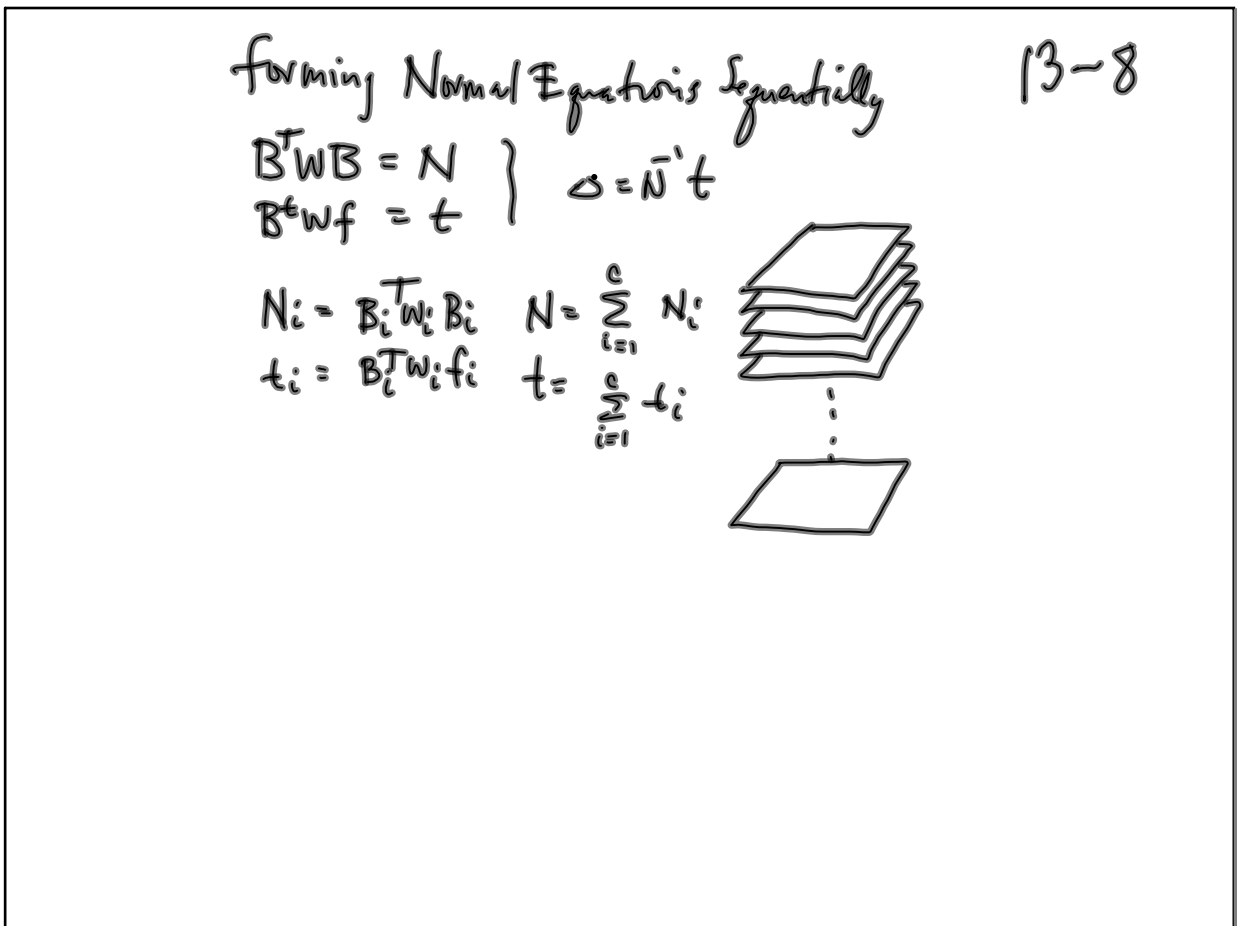 Forming Normal Equations Sequentially 13-8
BᵀWB = N } Δ = N⁻¹t
Bᵗwf = t
Nᵢ = BᵢᵀWᵢBᵢ N = Σ_{i=1}^{c} Nᵢ
tᵢ = Bᵢᵀwᵢfᵢ t = Σ_{i=1}^{c} tᵢ